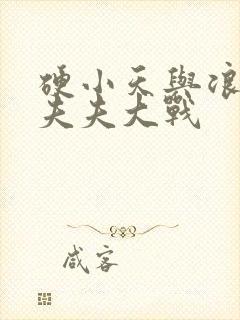 硬小天與浪
夫夫大戰
咸客